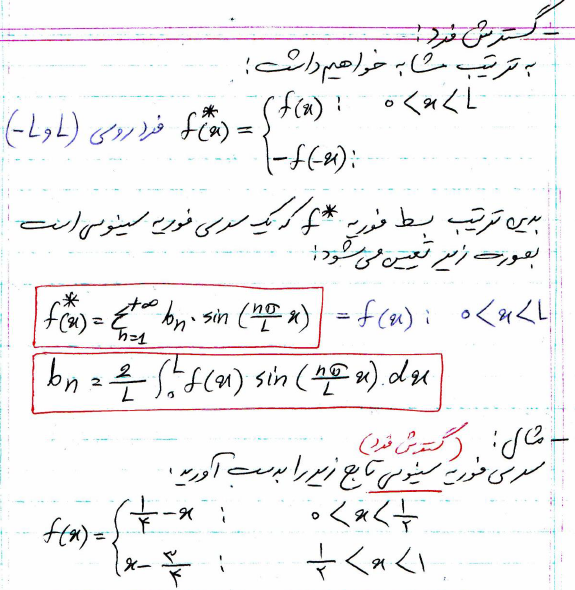 - گسترش فرد:
به ترتیب مشابه خواهیم داشت:
f*(x) = { f(x) : 0 < x < L
-f(-x) :
فرد روی (-L و L)
بدین ترتیب بسط فوریه f* که یک سری فوریه سینوسی است
بصورت زیر تعیین می‌شود:
f*(x) = Σ_{n=1}^{+∞} bn . sin (nπ/L x) = f(x) : 0 < x < L
bn = 2/L ∫₀ᴸ f(x) sin (nπ/L x) . dx
- مثال: (گسترش فرد)
سری فوریه سینوسی تابع زیر را بدست آورید:
f(x) = { ۱/۴ - x : 0 < x < ۱/۲
x - ۳/۴ : ۱/۲ < x < ۱